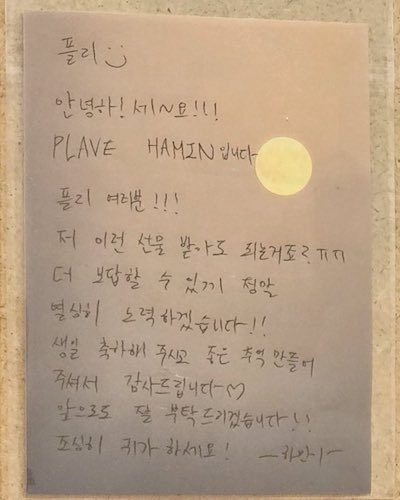 플리 :)
안녕하!세~요!!!
PLAVE HAMIN입니다~
플리 여러분!!!
저 이런 선물 받아도 되는거죠?ㅠㅠ
더 보답할 수 있게 정말
열심히 노력하겠습니다!!
생일 축하해 주시고 좋은 추억 만들어
주셔서 감사드립니다♡
앞으로도 잘 부탁드리겠습니다!!
조심히 귀가 하세요! -하민이-